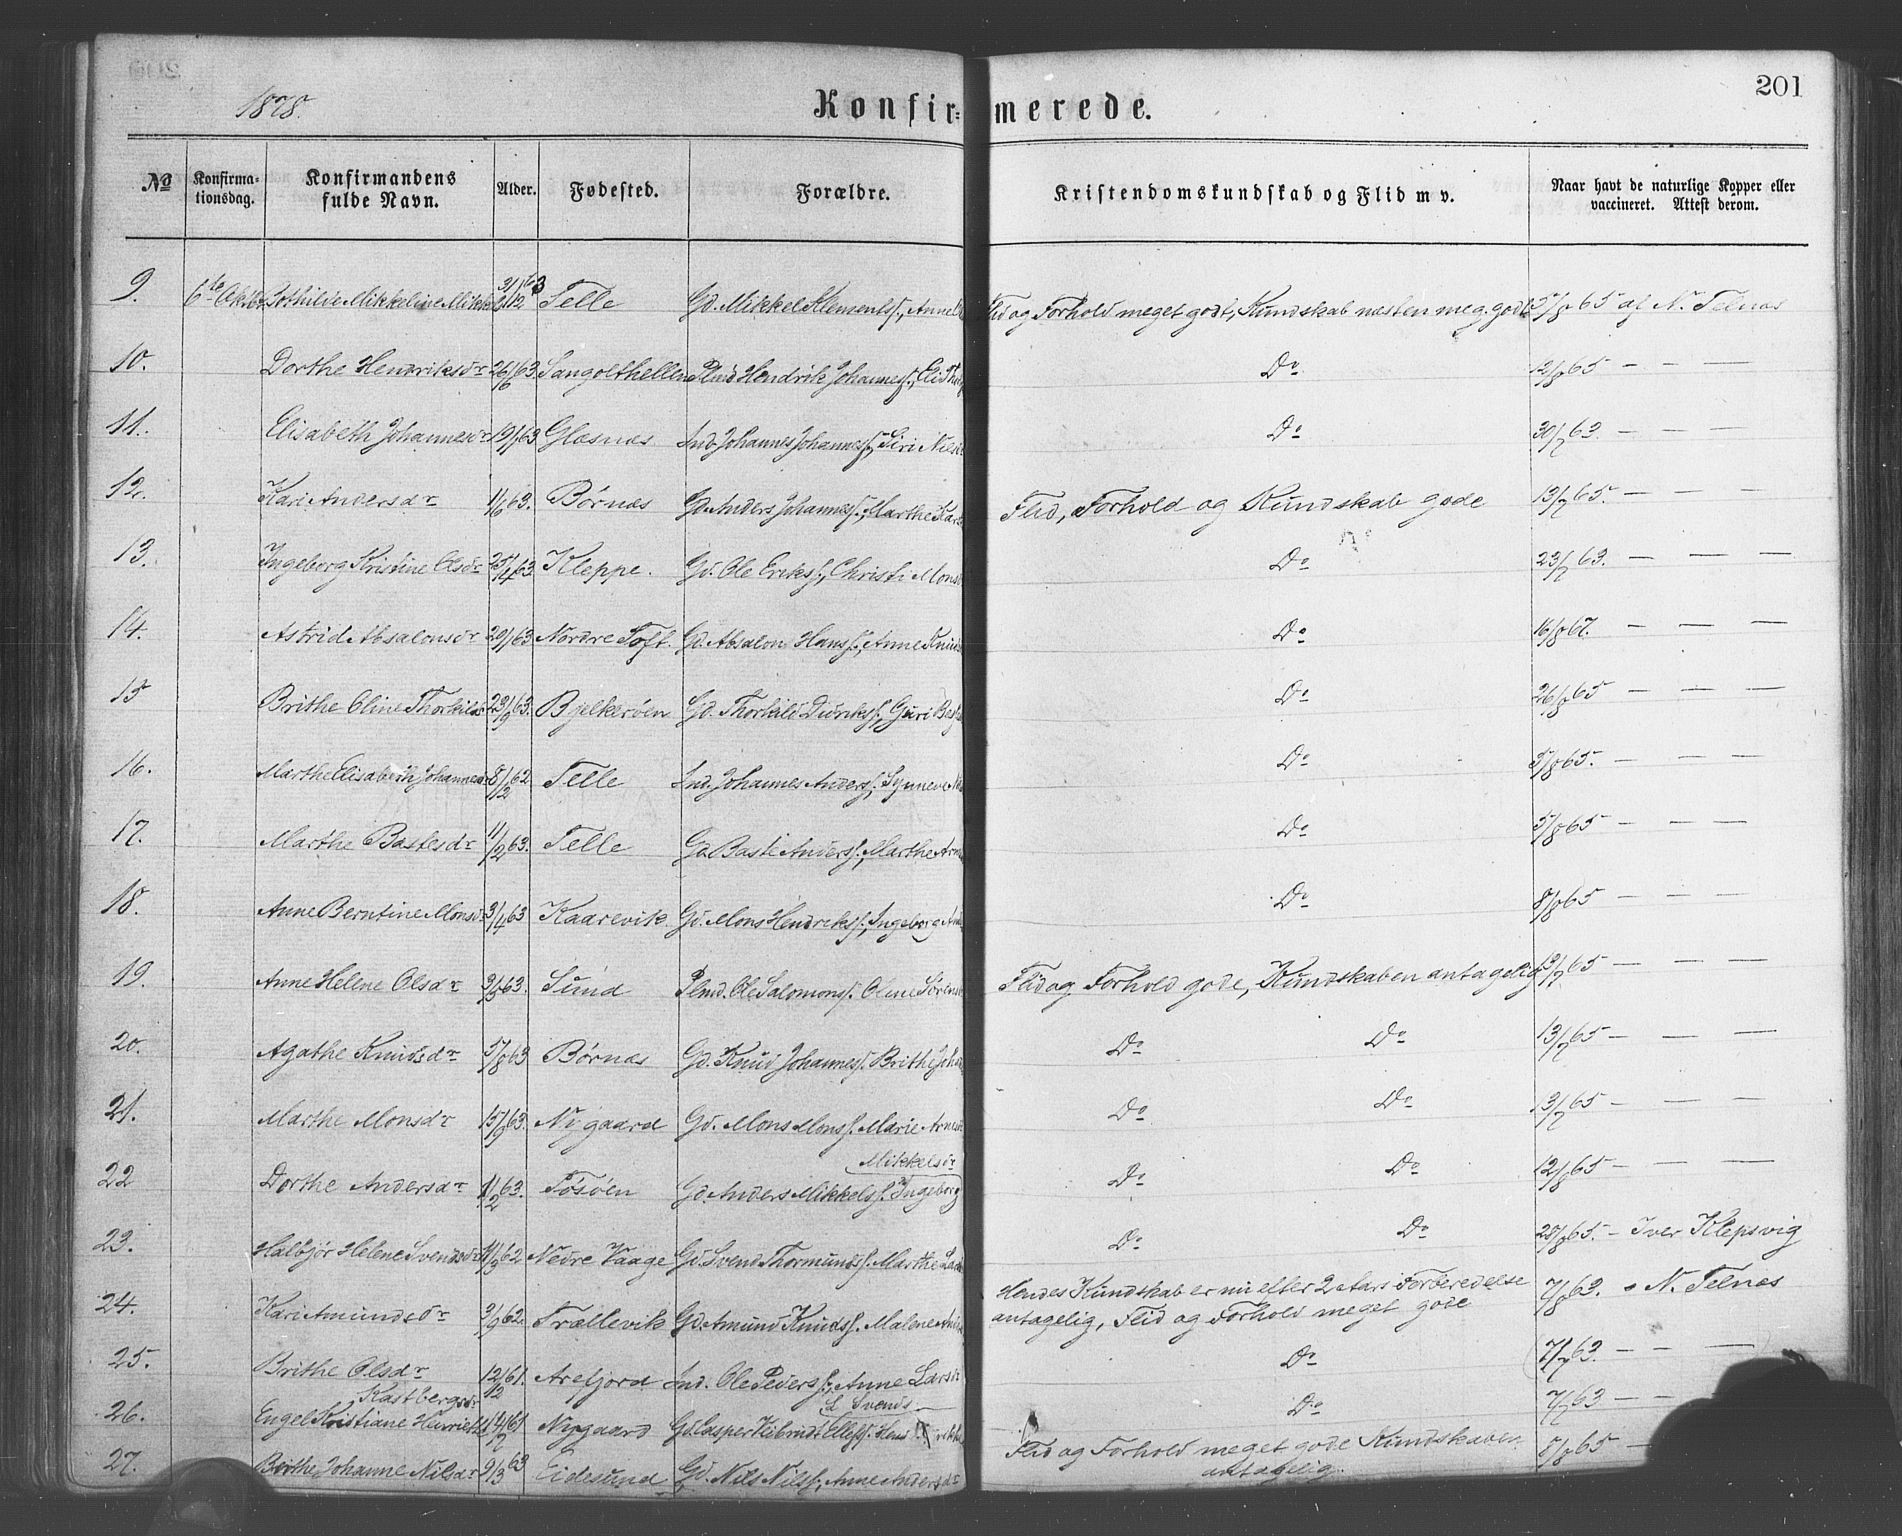 1878.
Konfirmerede.
201
No Konfirmationsdag. Konfirmandens fulde Navn. Alder. Fødested. Forældre. Kristendomskundskab og Flid m v. Naar havt de naturlige Kopper eller vaccineret. Attest derom.
9. 6te Oktbr Bothilde Mikkeline Telle Gd. Mikkel Klements., Anne Flid og Forhold meget godt, Kundskab næsten meg. godt 5/8 65 af N. Telnæs
10. Dorthe Henriksdr 26/6 63. Sangolthellen Plmd Hendrik Johanness., Do 12/8 65 — — —
11. Elisabeth Johannesdr 19/7 63 Glæsnæs Ind. Johannes Johanness., Siri Nils Do 30/7 63. — — —
12. Kari Andersdr 1/6 63. Børnæs Gd. Anders Johanness., Marthe Lars Flid, Forhold og Kundskab gode 13/7 65. — — —
13. Ingeborg Kristine Olsdr 25/4 63. Kleppe. Gd. Ole Eriks., Christi Mons Do 23/7 63. — — —
14. Astrid Absalonsdr 20/1 63 Nordre Toft. Gd. Absalon Hans., Anne Knuds Do 16/8 67. — — —
15 Brithe Oline Thorkilds 23/9 63. Bjelkerøen Gd. Thorkild Duriks., Guri Do 26/8 65 — — —
16. Marthe Elisabeth Johannesdr 8/12 62 Telle Ind. Johannes Anders., Synneve Do 5/8 65. — — —
17. Marthe Bastesdr 11/2 63. Telle Gd. Baste Anders., Marthe Do 5/8 65 — — —
18. Anne Berntine Monsdr 3/4 63 Kaarevik Gd. Mons Hendriks., Ingeborg Do 8/8 65 — — —
19. Anne Helene Olsdr 3/5 63. Sund Plmd. Ole Salomons. Oline Sørens Flid og Forhold gode, Kundskaben antagelig 13/7 65 — — —
20. Agathe Knudsdr 5/8 63 Børnæs Gd. Knud Johanness. Brithe Joha Do Do 13/7 65 — — —
21. Marthe Monsdr 15/9 63. Nygaard Gd. Mons Mons. Marie Arnes Do Do 13/7 65 — — —
Mikkelsdr
22 Dorthe Andersdr 11/2 63. Tøsøen Gd. Anders Mikkels. Ingeborg Do Do 12/8 65 — — —
23. Halbjør Helene Svendsdr Nedre Vaage Gd. Svend Thormunds. Marthe Do Do 28/8 65. — Iver Klepsvig
24. Kari Amundsdr 3/9 62. Trællevik Gd. Amund Knuds. Malene Hendes Kundskab er nu efter 2 Aars Forberedelse 7/8 63. N. Telnæs
antagelig, Flid og Forhold meget gode
25. Brithe Olsdr 12/12 61. Arefjord Ind. Ole Peders., Anne Lars Do 7/7 63. — — —
Kastbergsdr
Svends
26. Engel Kristiane Henriette 14/7 61 Nygaard Gd. Casper Do 7/7 63 — —
27. Berthe Johanne Nilsdr 9/3 63 Eidesund Gd. Nils Nils., Anne Andersdr Flid og Forhold meget gode Kundskaben 8/8 65 —
antagelig.